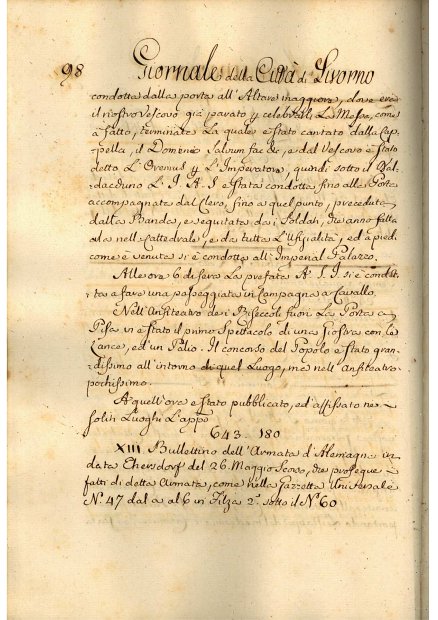 98 Giornale della Città di Livorno
condotta dalla porta all' Altare maggiore, dove era
il nostro Vescovo già parato p celebrare La Messa, come
à fatto, terminata La quale è stato cantato dalla Cap-
pella, il Domine Salvum fac &c, e dal Vescovo è stato
detto L'Oremus p L'Imperatore, quindi sotto il Bal-
dacchino L'I. A. S è stata condotta fino alla Porta
accompagnata dal Clero, fino a quel punto, preceduta
dalla Banda, e seguitata da i Soldati, che anno fatta
ala nell Cattedrale, e da tutta L'Ufizialità, ed a piedi
come è venuta si è condotta all' Imperial Palazzo.
Alle ore 6 di sera La prefata A. I. I. si è condot-
ta a fare una passeggiata in Campagna a Cavallo.
Nell' Anfiteatro de i Riseccoli fuori La Porta a
Pisa vi è stato il primo Spettacolo di una Giostra con le
Lance, ed un Palio. Il concorso del Popolo è stato gran-
dissimo all' intorno di quel Luogo, ma nell' Anfiteatro
pochissimo.
A quell' ora è stato pubblicato, ed affissato ne
soliti Luoghi L'app.
643. 180
XIII. Bullettino dell' Armata d' Alemagna in
data Ebersdorf del 26. Maggio Scorso, che prosegue
fatti di detta Armata, come nella Gazzetta Universale
N.º 47 dal a al 6 in Filza 2.ª sotto il N.º 60